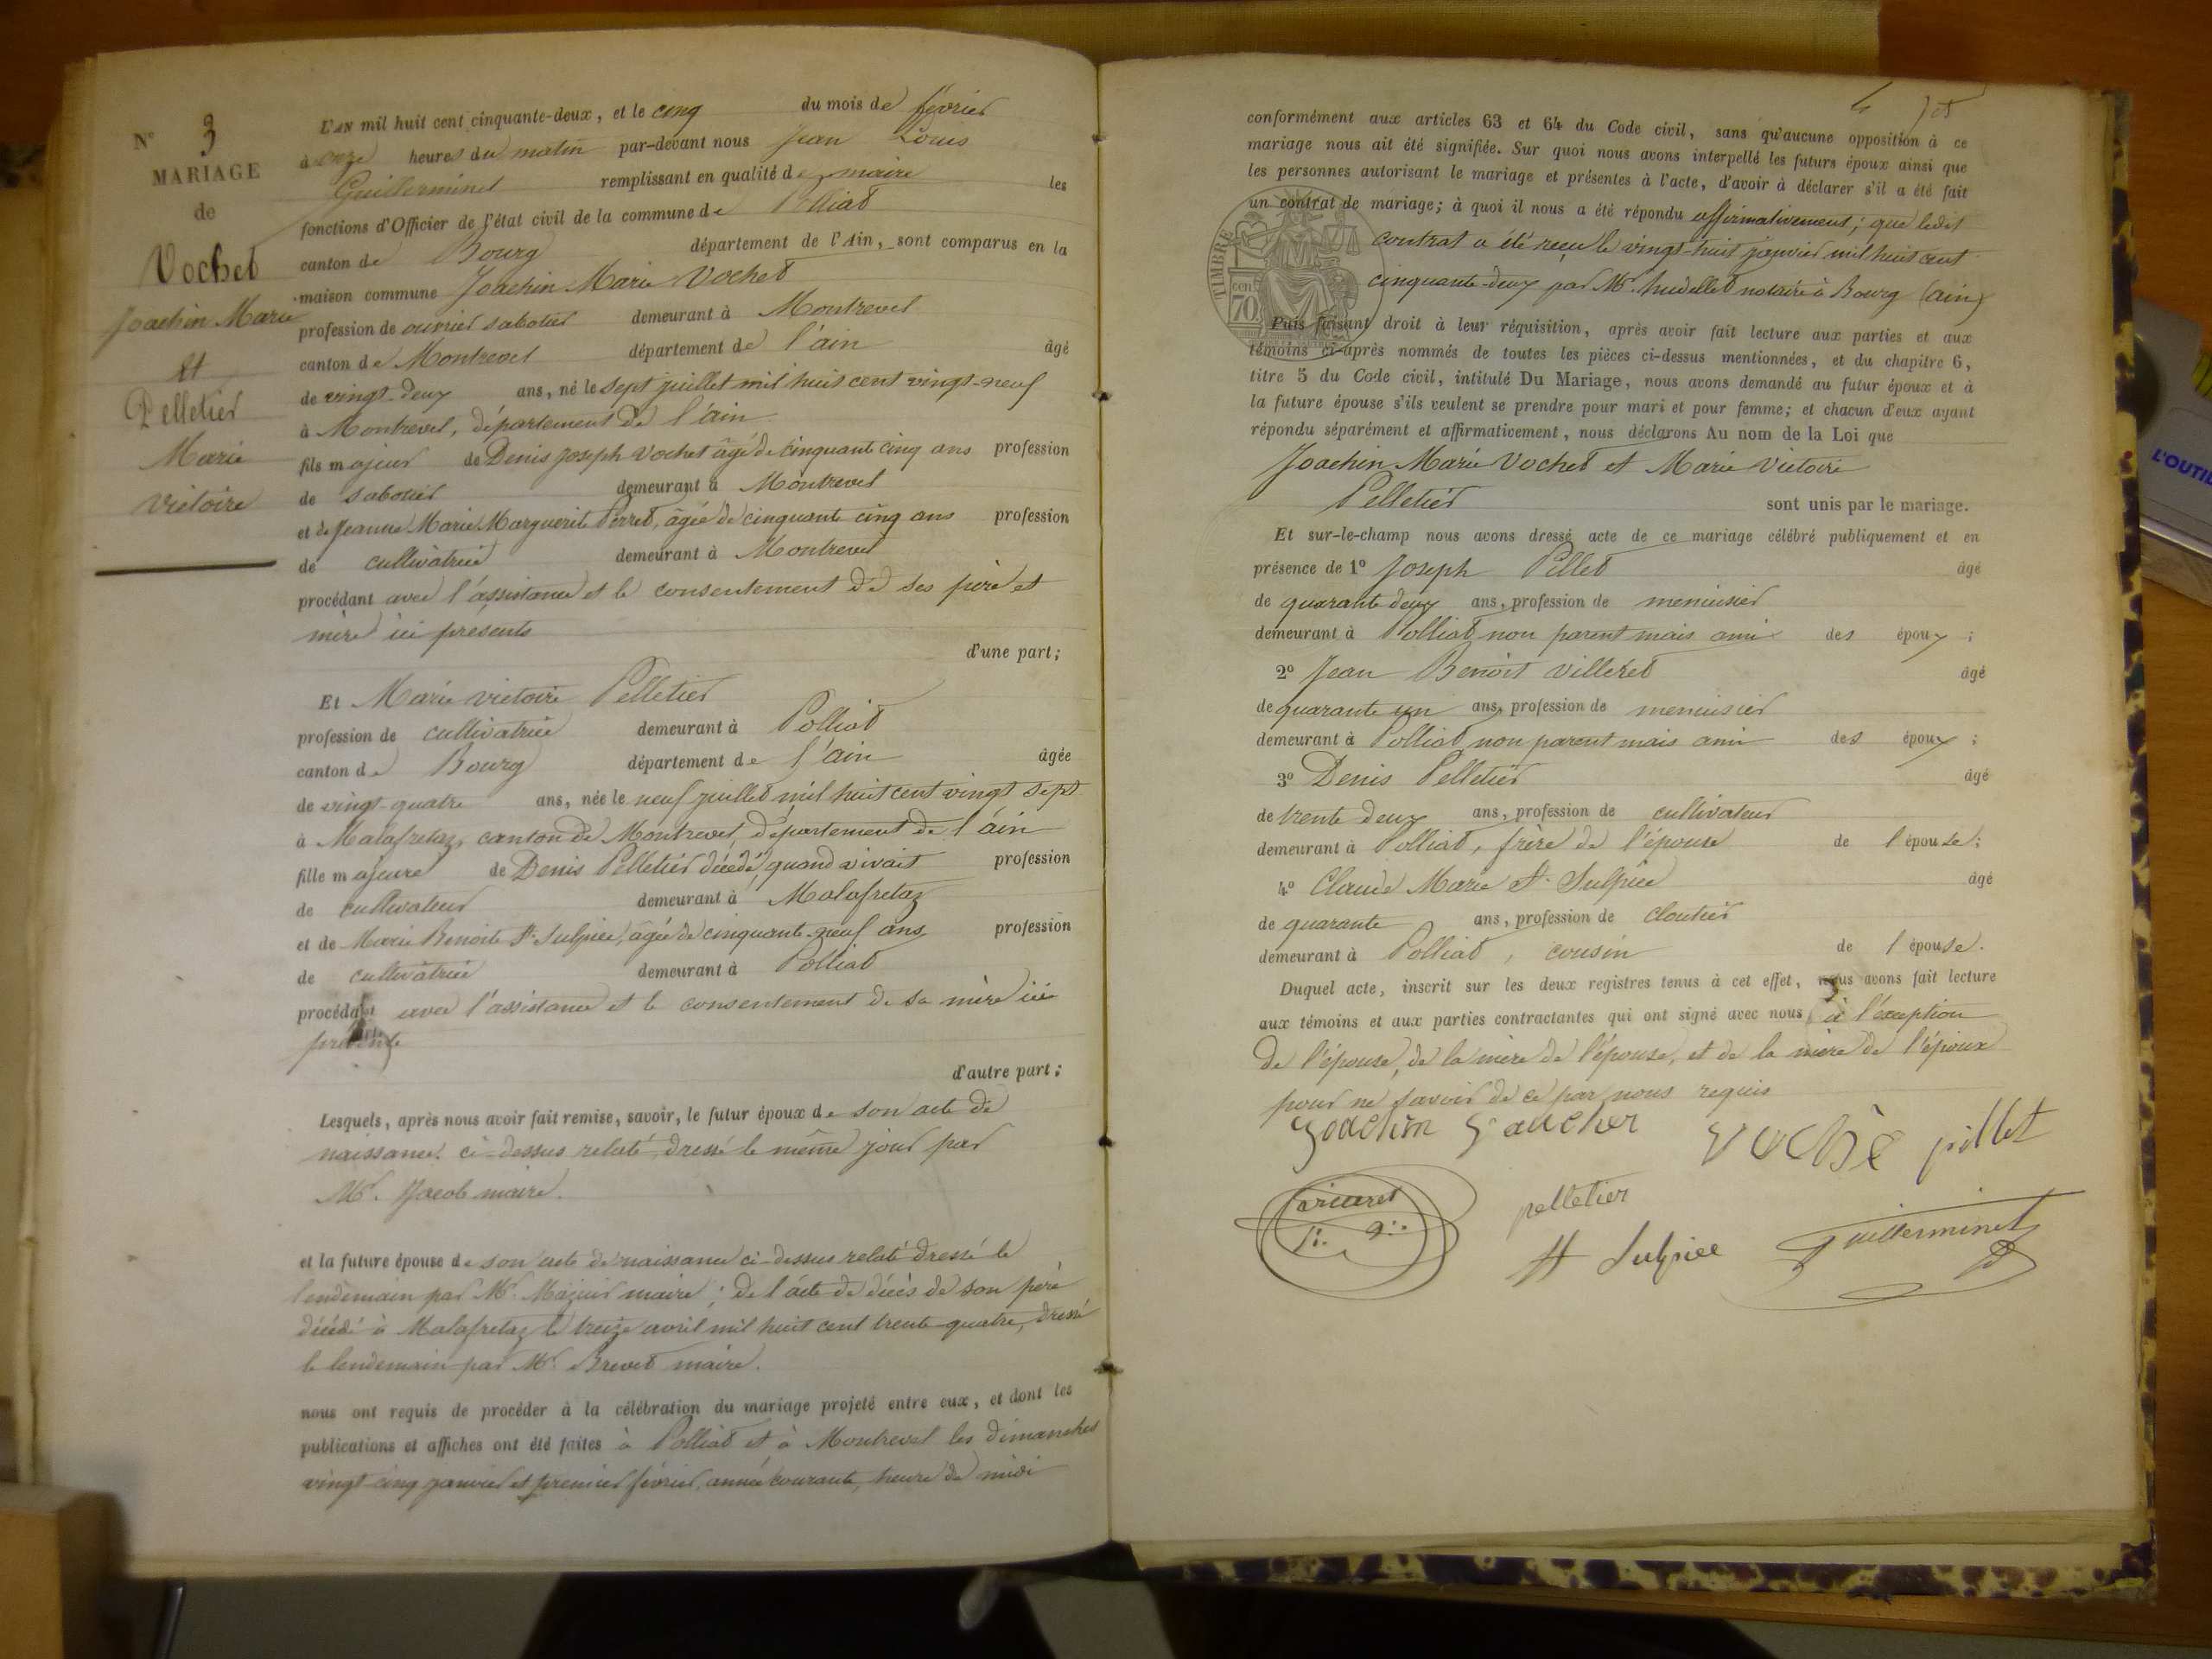 N° 3
MARIAGE
de
Vochet
Joachin Marie
et
Pelletier
Marie
victoire
L'AN mil huit cent cinquante-deux, et le cinq du mois de février
à onze heures du matin par-devant nous Jean Louis
Guillerminet remplissant en qualité de maire les
fonctions d'Officier de l'état civil de la commune de Polliat
canton de Bourg département de l'Ain, sont comparus en la
maison commune Joachin Marie Vochet
profession de ouvrier sabotier demeurant à Montrevel
canton de Montrevel département de l'ain âgé
de vingt-deux ans, né le sept juillet mil huit cent vingt-neuf
à Montrevel, département de l'ain
fils majeur de Denis Joseph Vochet âgé de cinquant cinq ans profession
de sabotier demeurant à Montrevel
et de Jeanne Marie Marguerite Perret, âgée de cinquante cinq ans profession
de cultivatrice demeurant à Montrevel
procédant avec l'assistance et le consentement de ses père et
mère ici présents
d'une part;
Et Marie victoire Pelletier
profession de cultivatrice demeurant à Polliat
canton de Bourg département de l'ain âgée
de vingt-quatre ans, née le neuf juillet mil huit cent vingt sept
à Malafretaz, canton de Montrevel, département de l'ain
fille majeure de Denis Pelletier décédé, quand vivait profession
de cultivateur demeurant à Malafretaz
et de Marie Benoite St. Sulpice, âgée de cinquante-neuf ans profession
de cultivatrice demeurant à Polliat
procédant avec l'assistance et le consentement de sa mère ici
présente
d'autre part;
Lesquels, après nous avoir fait remise, savoir, le futur époux de son acte de
naissance ci-dessus relaté dressé le même jour par
Mr. Jacob maire.
et la future épouse de son acte de naissance ci-dessus relaté dressé le
lendemain par Mr. maire; de l'acte de décès de son père
décédé à Malafretaz le treize avril mil huit cent trente-quatre, dressé
le lendemain par Mr. Brevet maire.
nous ont requis de procéder à la célébration du mariage projeté entre eux, et dont les
publications et affiches ont été faites à Polliat et à Montrevel les dimanches
vingt-cinq janvier et premier février, année courante, heure de midi
4
conformément aux articles 63 et 64 du Code civil, sans qu'aucune opposition à ce
mariage nous ait été signifiée. Sur quoi nous avons interpellé les futurs époux ainsi que
les personnes autorisant le mariage et présentes à l'acte, d'avoir à déclarer s'il a été fait
un contrat de mariage; à quoi il nous a été répondu affirmativement; que ledit
contrat a été reçu le vingt-huit janvier mil huit cent
cinquante-deux par Mr. hudellet notaire à Bourg (ain)
TIMBRE
cen
70
Puis faisant droit à leur réquisition, après avoir fait lecture aux parties et aux
témoins ci-après nommés de toutes les pièces ci-dessus mentionnées, et du chapitre 6,
titre 5 du Code civil, intitulé Du Mariage, nous avons demandé au futur époux et à
la future épouse s'ils veulent se prendre pour mari et pour femme; et chacun d'eux ayant
répondu séparément et affirmativement, nous déclarons Au nom de la Loi que
Joachin Marie Vochet et Marie Victoire
Pelletier sont unis par le mariage.
Et sur-le-champ nous avons dressé acte de ce mariage célébré publiquement et en
présence de 1° Joseph Pillet âgé
de quarante deux ans, profession de menuisier
demeurant à Polliat non parent mais ami des époux;
2° Jean Benoit Villeret âgé
de quarante un ans, profession de menuisier
demeurant à Polliat non parent mais ami des époux;
3° Denis Pelletier âgé
de trente deux ans, profession de cultivateur
demeurant à Polliat, frère de l'épouse de l'épouse;
4° Claude Marie St. Sulpice âgé
de quarante ans, profession de cloutier
demeurant à Polliat, cousin de l'épouse.
Duquel acte, inscrit sur les deux registres tenus à cet effet, nous avons fait lecture
aux témoins et aux parties contractantes qui ont signé avec nous à l'exception
de l'épouse, de la mère de l'épouse, et de la mère de l'époux
pour ne savoir de ce par nous requis
pillet
pelletier
St Sulpice
Guillerminet